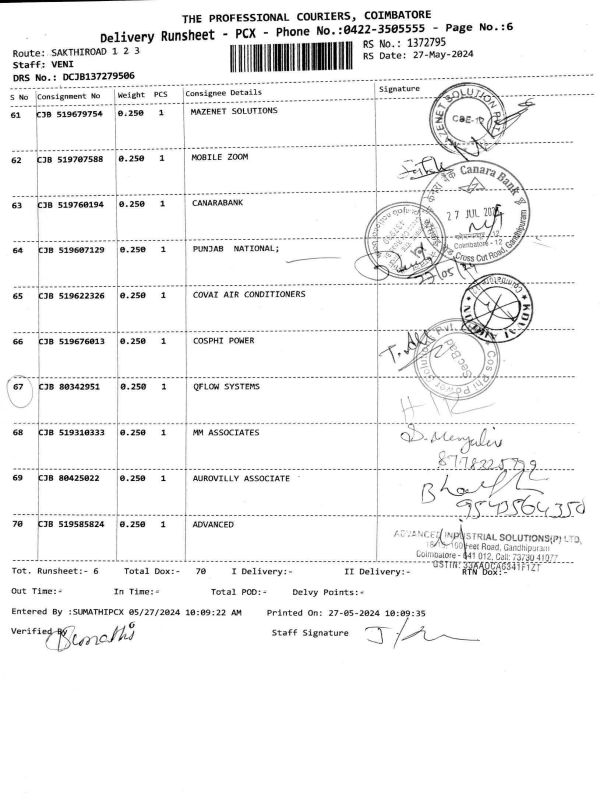 THE PROFESSIONAL COURIERS, COIMBATORE
Delivery Runsheet - PCX - Phone No.:0422-3505555 - Page No.:6
Route: SAKTHIROAD 1 2 3
RS No.: 1372795
Staff: VENI
RS Date: 27-May-2024
DRS No.: DCJB137279506
S No Consignment No Weight PCS Consignee Details Signature
61 CJB 519679754 0.250 1 MAZENET SOLUTIONS
MAZENET SOLUTION
62 CJB 519707588 0.250 1 MOBILE ZOOM
Canara Bank
63 CJB 519760194 0.250 1 CANARABANK
27 JUL
Coimbatore - 12
Cross Cut Road, Gandhipuram
64 CJB 519607129 0.250 1 PUNJAB NATIONAL;
27/05/24
65 CJB 519622326 0.250 1 COVAI AIR CONDITIONERS
KOVAI
66 CJB 519676013 0.250 1 COSPHI POWER
Cos Phi Power
67 CJB 80342951 0.250 1 QFLOW SYSTEMS
68 CJB 519310333 0.250 1 MM ASSOCIATES
69 CJB 80425022 0.250 1 AUROVILLY ASSOCIATE
9543564350
70 CJB 519585824 0.250 1 ADVANCED
ADVANCED INDUSTRIAL SOLUTIONS(P) LTD,
100 Feet Road, Gandhipuram
Coimbatore - 641 012, Call: 73730 41077
GSTIN: 33AAOCA6341F1ZT
Tot. Runsheet:- 6 Total Dox:- 70 I Delivery:- II Delivery:- RTN Dox:-
Out Time:- In Time:- Total POD:- Delvy Points:-
Entered By :SUMATHIPCX 05/27/2024 10:09:22 AM Printed On: 27-05-2024 10:09:35
Verified By Sumathi Staff Signature